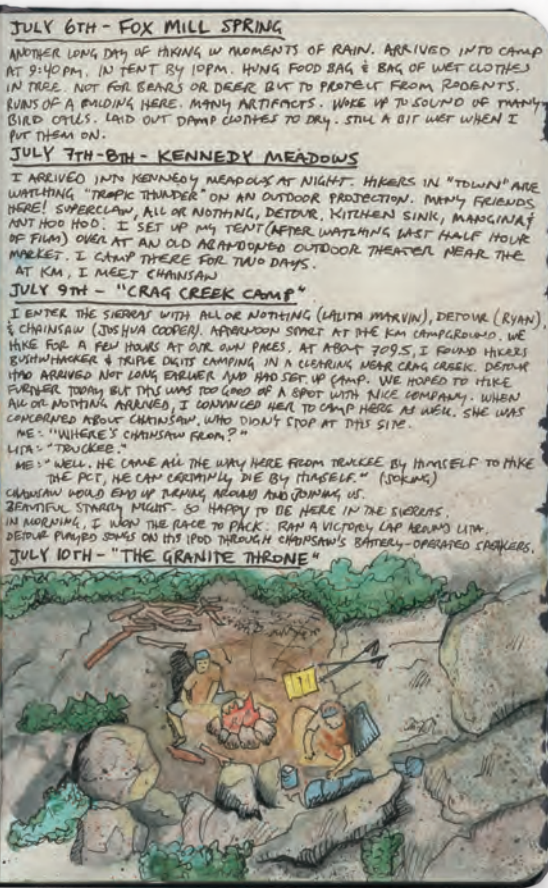 JULY 6TH - FOX MILL SPRING
ANOTHER LONG DAY OF HIKING W MOMENTS OF RAIN. ARRIVED INTO CAMP
AT 9:40PM, IN TENT BY 10PM. HUNG FOOD BAG & BAG OF WET CLOTHES
IN TREE. NOT FOR BEARS OR DEER BUT TO PROTECT FROM RODENTS.
RUINS OF A BUILDING HERE. MANY ARTIFACTS. WOKE UP TO SOUND OF MANY
BIRD CALLS. LAID OUT DAMP CLOTHES TO DRY. STILL A BIT WET WHEN I
PUT THEM ON.
JULY 7TH-8TH - KENNEDY MEADOWS
I ARRIVED INTO KENNEDY MEADOWS AT NIGHT. HIKERS IN "TOWN" ARE
WATCHING "TROPIC THUNDER" ON AN OUTDOOR PROJECTION. MANY FRIENDS
HERE! SUPERCLAW, ALL OR NOTHING, DETOUR, KITCHEN SINK, MANGINA &
ANT HOO HOO. I SET UP MY TENT (AFTER WATCHING LAST HALF HOUR
OF FILM) OVER AT AN OLD ABANDONED OUTDOOR THEATER NEAR THE
MARKET. I CAMP THERE FOR TWO DAYS.
AT KM, I MEET CHAINSAW
JULY 9TH - "CRAG CREEK CAMP"
I ENTER THE SIERRAS WITH ALL OR NOTHING (LALITA MARVIN), DETOUR (RYAN),
& CHAINSAW (JOSHUA COOPER). AFTERNOON START AT THE KM CAMPGROUND. WE
HIKE FOR A FEW HOURS AT OUR OWN PACES. AT ABOUT 709.5, I FOUND HIKERS
BUSHWHACKER & TRIPLE DIGITS CAMPING IN A CLEARING NEAR CRAG CREEK. DETOUR
HAD ARRIVED NOT LONG EARLIER AND HAD SET UP CAMP. WE HOPED TO HIKE
FURTHER TODAY BUT THIS WAS TOO GOOD OF A SPOT WITH NICE COMPANY. WHEN
ALL OR NOTHING ARRIVED, I CONVINCED HER TO CAMP HERE AS WELL. SHE WAS
CONCERNED ABOUT CHAINSAW, WHO DIDN'T STOP AT THIS SITE.
ME: "WHERE'S CHAINSAW FROM?"
LITA: "TRUCKEE."
ME: "WELL. HE CAME ALL THE WAY HERE FROM TRUCKEE BY HIMSELF TO HIKE
THE PCT, HE CAN CERTAINLY DIE BY HIMSELF." (JOKING)
CHAINSAW WOULD END UP TURNING AROUND AND JOINING US.
BEAUTIFUL STARRY NIGHT. SO HAPPY TO BE HERE IN THE SIERRAS.
IN MORNING, I WON THE RACE TO PACK. RAN A VICTORY LAP AROUND LITA.
DETOUR PLAYED SONGS ON HIS IPOD THROUGH CHAINSAW'S BATTERY-OPERATED SPEAKERS.
JULY 10TH - "THE GRANITE THRONE"